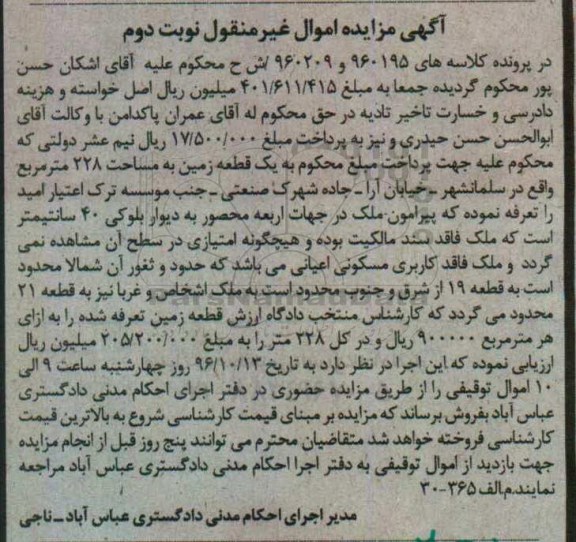 آگهی مزایده اموال غیرمنقول نوبت دوم
در پرونده کلاسه های ۹۶۰۱۹۵ و ۹۶۰۲۰۹ /ش ح محکوم علیه آقای اشکان حسن
پور محکوم گردیده جمعا به مبلغ ۴۰۱/۶۱۱/۴۱۵ میلیون ریال اصل خواسته و هزینه
دادرسی و خسارت تاخیر تادیه در حق محکوم له آقای عمران پاکدامن با وکالت آقای
ابوالحسن حسن حیدری و نیز به پرداخت مبلغ ۱۷/۵۰۰/۰۰۰ ریال نیم عشر دولتی که
محکوم علیه جهت پرداخت مبلغ محکوم به یک قطعه زمین به مساحت ۲۲۸ مترمربع
واقع در سلمانشهر ـ خیابان آرا ـ جاده شهرک صنعتی ـ جنب موسسه ترک اعتیار امید
را تعرفه نموده که پیرامون ملک در جهات اربعه محصور به دیوار بلوکی ۴۰ سانتیمتر
است که ملک فاقد سند مالکیت بوده و هیچگونه امتیازی در سطح آن مشاهده نمی
گردد و ملک فاقد کاربری مسکونی اعیانی می باشد که حدود و ثغور آن شمالا محدود
است به قطعه ۱۹ از شرق و جنوب محدود است به ملک اشخاص و غربا نیز به قطعه ۲۱
محدود می گردد که کارشناس منتخب دادگاه ارزش قطعه زمین تعرفه شده را به ازای
هر مترمربع ۹۰۰۰۰۰ ریال و در کل ۲۲۸ متر را به مبلغ ۲۰۵/۲۰۰/۰۰۰ میلیون ریال
ارزیابی نموده که این اجرا در نظر دارد به تاریخ ۹۶/۱۰/۱۳ روز چهارشنبه ساعت ۹ الی
۱۰ اموال توقیفی را از طریق مزایده حضوری در دفتر اجرای احکام مدنی دادگستری
عباس آباد بفروش برساند که مزایده بر مبنای قیمت کارشناسی شروع به بالاترین قیمت
کارشناسی فروخته خواهد شد متقاضیان محترم می توانند پنج روز قبل از انجام مزایده
جهت بازدید از اموال توقیفی به دفتر اجرا احکام مدنی دادگستری عباس آباد مراجعه
نمایند.م.الف ۳۶۵-۳۰
مدیر اجرای احکام مدنی دادگستری عباس آباد ـ ناجی